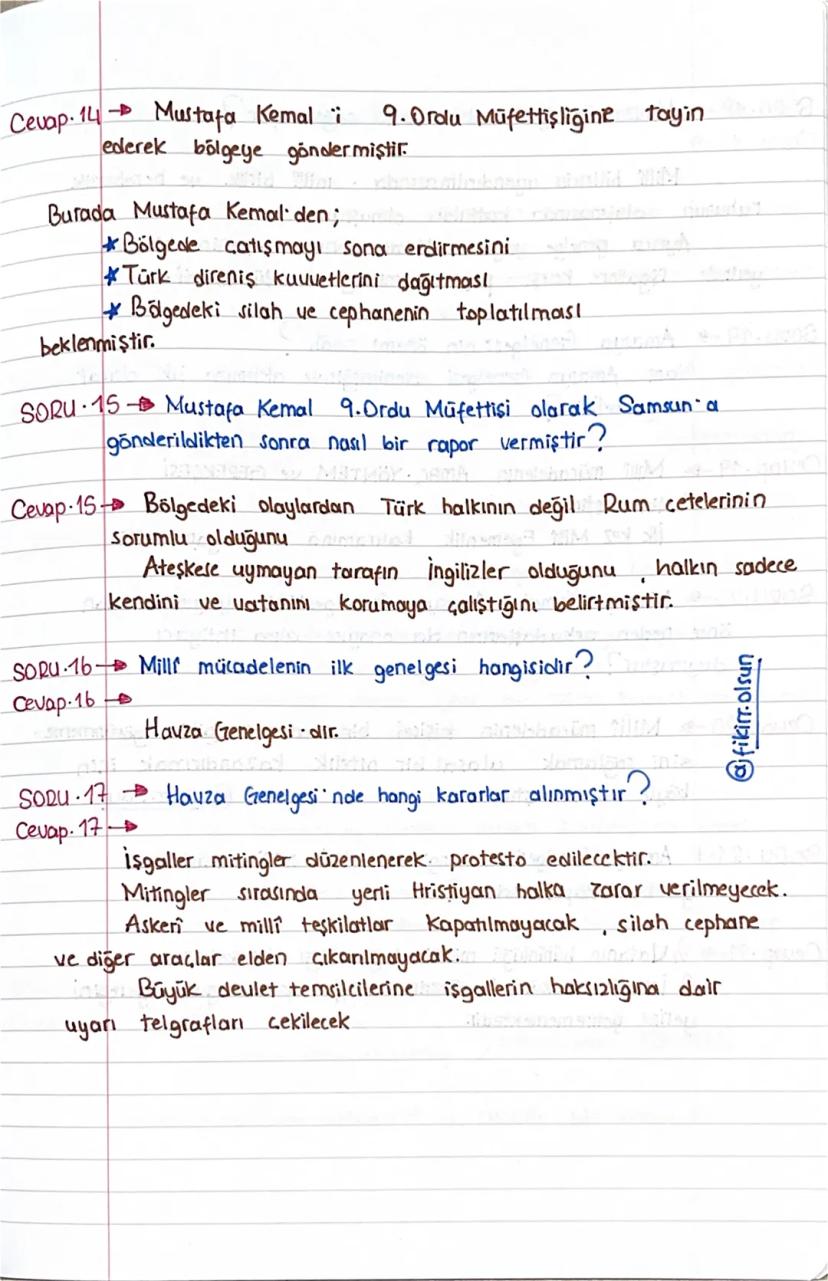 Cevap.14 → Mustafa Kemal'i 9.Ordu Müfettişliğine tayin
ederek bölgeye göndermiştir.
Burada Mustafa Kemal'den;
* Bölgede çatışmayı sona erdirmesini
* Türk direniş kuvvetlerini dağıtması
* Bölgedeki silah ve cephanenin toplatılması
beklenmiştir.
SORU.15 → Mustafa Kemal 9.Ordu Müfettişi olarak Samsun'a
gönderildikten sonra nasıl bir rapor vermiştir?
Cevap.15 → Bölgedeki olaylardan Türk halkının değil Rum çetelerinin
sorumlu olduğunu
Ateşkese uymayan tarafın İngilizler olduğunu, halkın sadece
kendini ve vatanını korumaya çalıştığını belirtmiştir.
SORU.16 → Millî mücadelenin ilk genelgesi hangisidir?
Cevap.16 →
Havza Genelgesi'dir.
@fikirr.olsun
SORU.17 → Havza Genelgesi'nde hangi kararlar alınmıştır?
Cevap.17 →
İşgaller mitingler düzenlenerek protesto edilecektir.
Mitingler sırasında yerli Hristiyan halka zarar verilmeyecek.
Askerî ve millî teşkilatlar kapatılmayacak, silah cephane
ve diğer araçlar elden çıkarılmayacak.
Büyük devlet temsilcilerine işgallerin haksızlığına dair
uyarı telgrafları çekilecek